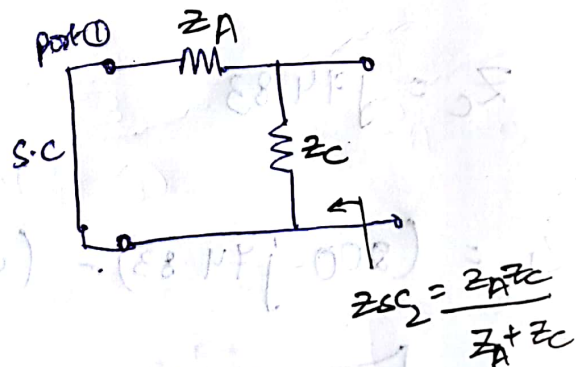 port①
Z_A
S.C
Z_C
Z_SC2 = Z_A Z_C / Z_A + Z_C